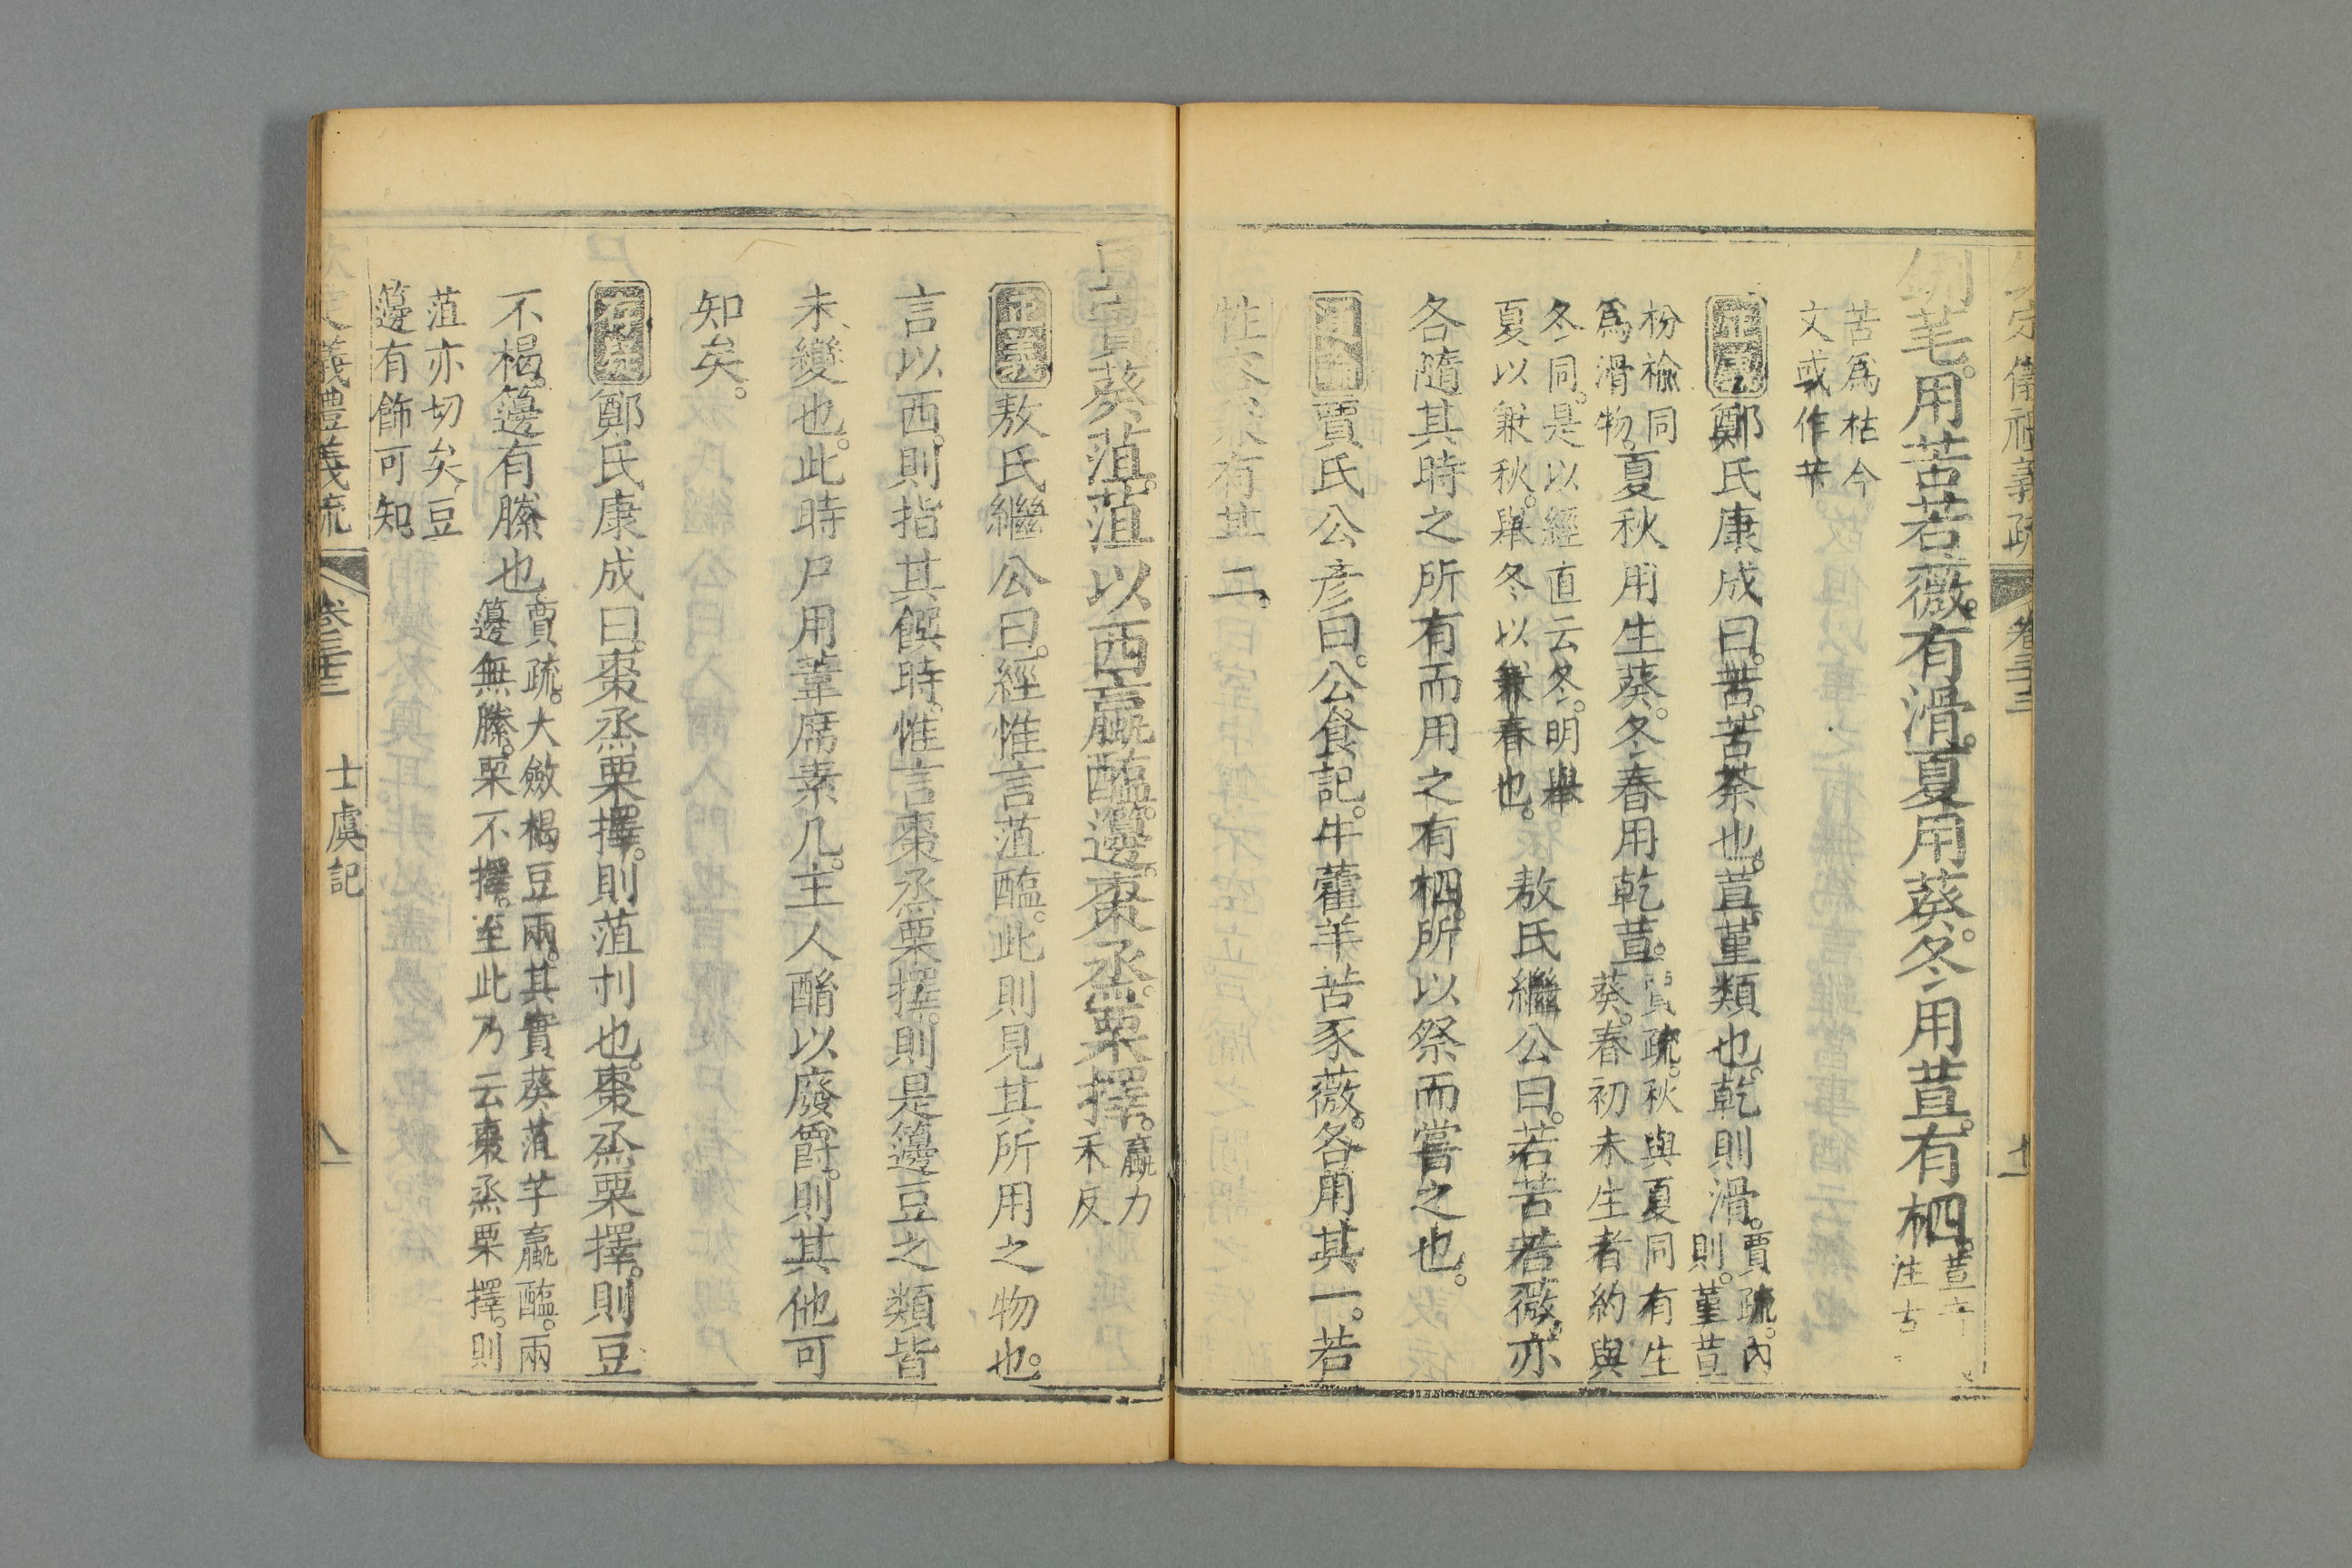 儀禮義疏 卷三十三
鉶芼。用苦若薇。有滑。夏用葵。冬用荁。有柶。荁音 注古
苦爲枯今
文或作芐
正義 鄭氏康成曰。苦。苦荼也。荁。菫類也。乾則滑。賈疏。內則。菫荁
枌榆同
爲滑物。夏秋用生葵。冬春用乾荁。賈疏。秋與夏同有生葵。春初未生者約與
冬同。是以經直云冬。明舉
夏以兼秋。舉冬以兼春也。 敖氏繼公曰。若苦若薇。亦
各隨其時之所有而用之。有柶。所以祭而嘗之也。
賈氏公彥曰。公食記。牛藿羊苦豕薇。各用其一。若
牲 有其二。
豆實葵菹。菹以西蠃醢。籩。棗烝。栗擇。蠃力禾反
正義 敖氏繼公曰。經惟言菹醢。此則見其所用之物也。
言以西。則指其饌時。惟言棗烝栗擇。則是籩豆之類皆
未變也。此時尸用葦席素几。主人酳以廢爵。則其他可
知矣。
存疑 鄭氏康成曰。棗烝栗擇。則菹刌也。棗烝栗擇。則豆
不楬。籩有縢也。賈疏。大斂楬豆兩。其實葵菹芋蠃醢。兩籩無縢。栗不擇。至此乃云棗烝栗擇。則
菹亦切矣豆
籩有飾可知
義禮義疏 卷三十三 士虞記